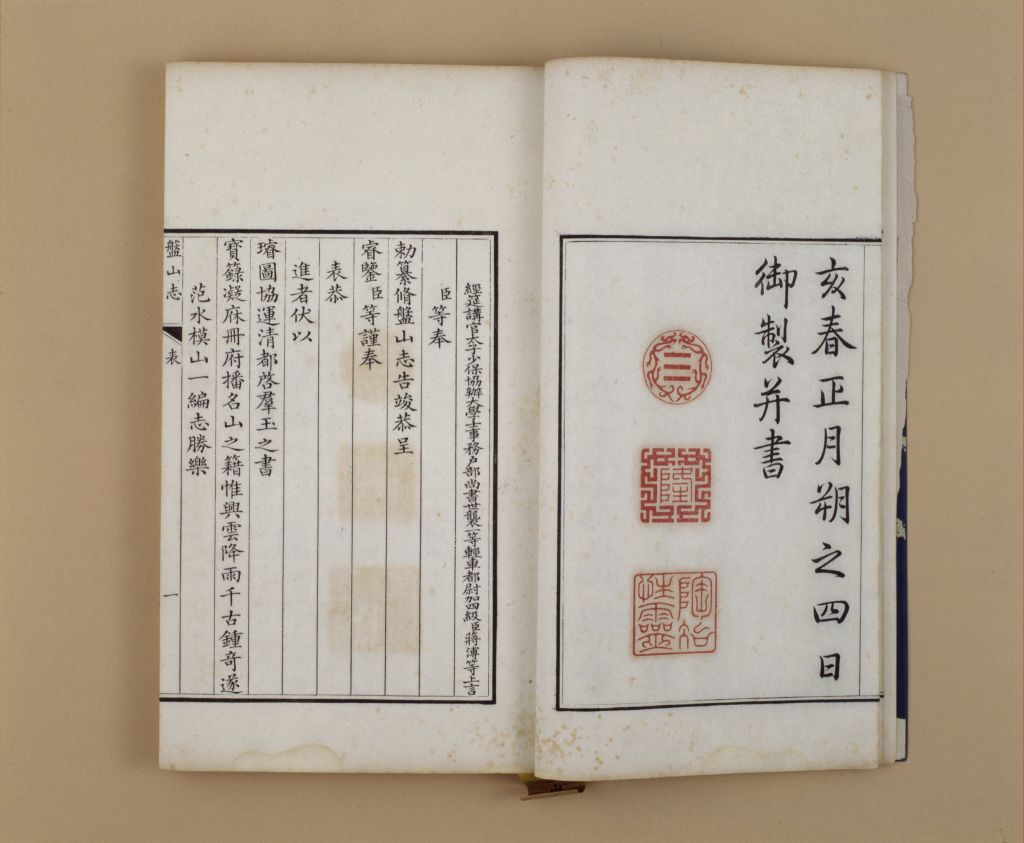 亥春正月朔之四日
御製并書
☰
隆
陶冶
性靈
經筵講官太子少保協辦大學士事務户部尚書世襲一等輕車都尉加四級臣蔣溥等上言
臣等奉
勅纂脩盤山志告竣恭呈
睿鑒臣等謹奉
表恭
進者伏以
璿圖協運清都啓羣玉之書
寶籙凝庥冊府播名山之籍惟興雲降雨千古鍾奇遂
范水模山一編志勝樂
盤山志
表
一